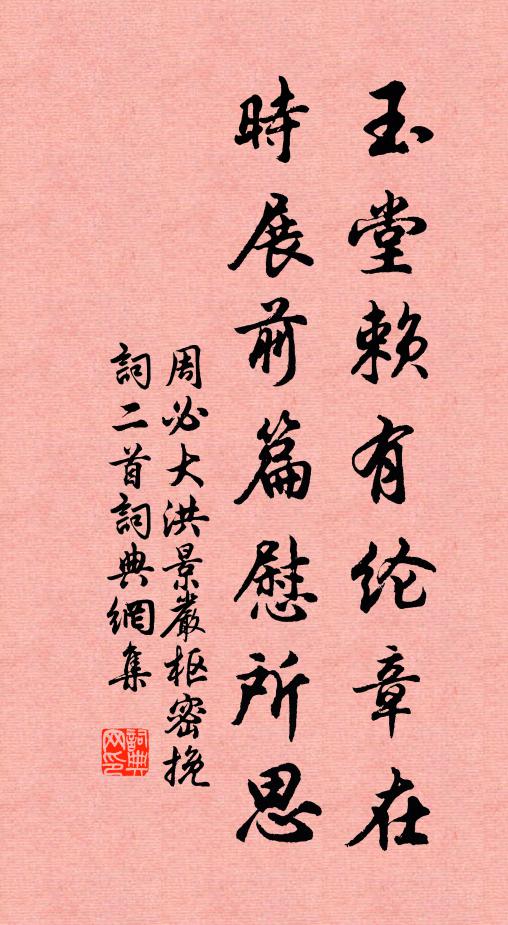 玉堂赖有纶章在
時展前篇慰所思
周必大洪景嚴枢密挽
詞二首詞典網集
詞典網印